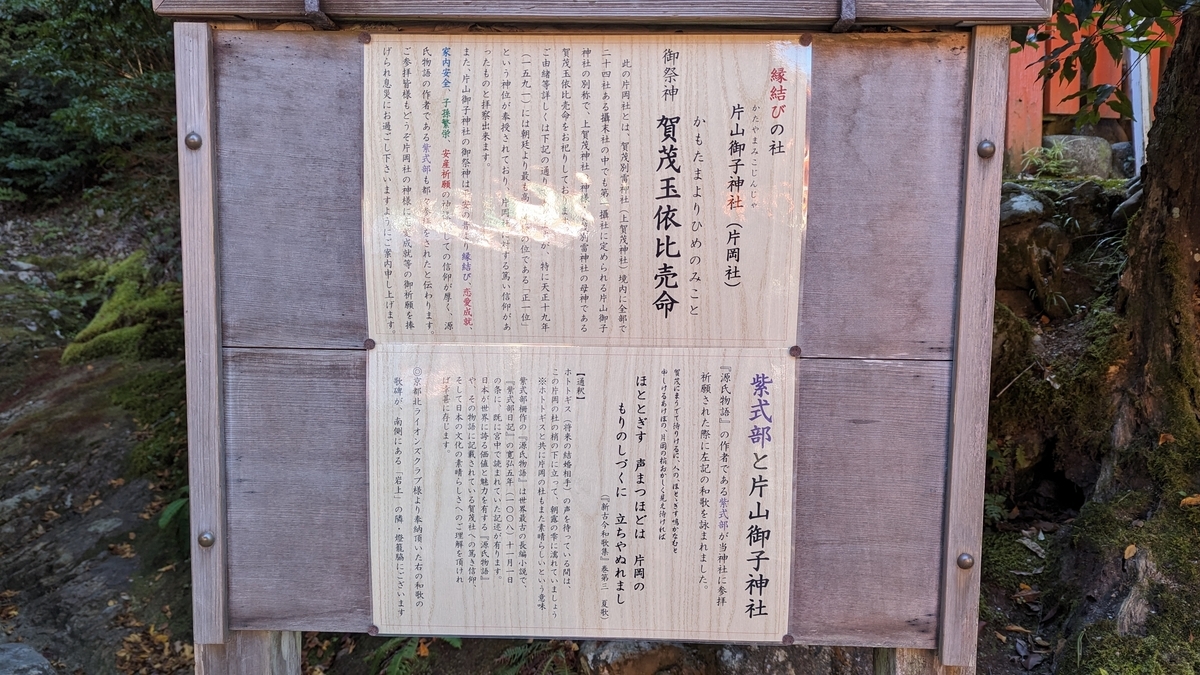 縁結びの社
かたやまみこじんじゃ
片山御子神社(片岡社)
かもたまよりひめのみこと
御祭神 賀茂玉依比売命
此の片岡社とは、賀茂別雷神社(上賀茂神社)境内に全部で
二十四社ある攝末社の中でも第一攝社に定められる片山御子
神社の別称で、上賀茂神社の神様 賀茂別雷神社の母神である
賀茂玉依比売命をお祀りしております。
ご由緒等詳しくは下記の通りですが、特に天正十九年
(一五九一)には朝廷より最も高い神様の位である「正一位」
という神位が奉授されており、片岡社に対する篤い信仰があ
ったものと拝察出来ます。
また、片山御子神社の御祭神は平安の昔より縁結び、恋愛成就、
家内安全、子孫繁栄、安産祈願の神様としての信仰が厚く、源
氏物語の作者である紫式部も都々参拝をされたと伝わります。
ご参拝皆様もどうぞ片岡社の神様に恋愛成就等の御祈願を捧
げられ息災にお過ごし下さいますようにご案内申し上げます。
紫式部と片山御子神社
『源氏物語』の作者である紫式部が当神社に参拝
祈願された際に左記の和歌を詠まれました。
賀茂にまうでて侍りけるに、人の、ほととぎす鳴かなむと
申しけるあけぼの、片岡の梢おかしく見え侍ければ
ほととぎす 声まつほどは 片岡の
もりのしづくに 立ちやぬれまし
(『新古今和歌集』巻第三 夏歌)
【通釈】
ホトトギス(将来の結婚相手)の声を待っている間は、
この片岡の杜の梢の下に立って、朝露の雫に濡れていましょう
※ホトトギスと共に片岡の杜もまた素晴らしいという意味
紫式部御作の『源氏物語』は世界最古の長編小説で、
『紫式部日記』の寛弘五年(一〇〇八)十一月一日
の条に、既に宮中で読まれていた記述が有ります。
日本が世界に誇る価値と魅力を有する『源氏物語』
や、その物語に記載されている賀茂社への篤き信仰、
そして日本の文化の素晴らしさへのご理解を頂けれ
ば幸甚に存じます。
◎京都北ライオンズクラブ様より奉納頂いた右の和歌の
歌碑が、南側にある「岩上」の隣・燈籠脇にございます